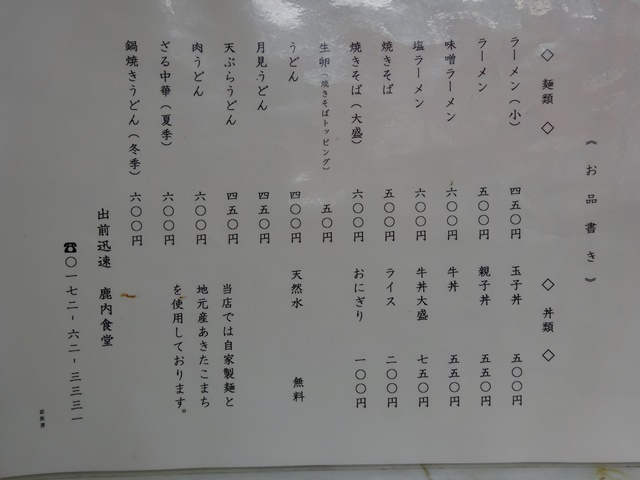 《お品書き》
◇ 麺類 ◇
ラーメン（小） 四五〇円
ラーメン 五〇〇円
味噌ラーメン 六〇〇円
塩ラーメン 六〇〇円
焼きそば 五〇〇円
焼きそば（大盛） 六〇〇円
生卵（焼きそばトッピング） 五〇円
うどん 四〇〇円
月見うどん 四五〇円
天ぷらうどん 四五〇円
肉うどん 六〇〇円
ざる中華（夏季） 六〇〇円
鍋焼きうどん（冬季） 六〇〇円
◇ 丼類 ◇
玉子丼 五〇〇円
親子丼 五五〇円
牛丼 五五〇円
牛丼大盛 七五〇円
ライス 二〇〇円
おにぎり 一〇〇円
天然水 無料
当店では自家製麺と
地元産あきたこまち
を使用しております。
出前迅速 鹿内食堂
☎〇一七二-六二-三三三一